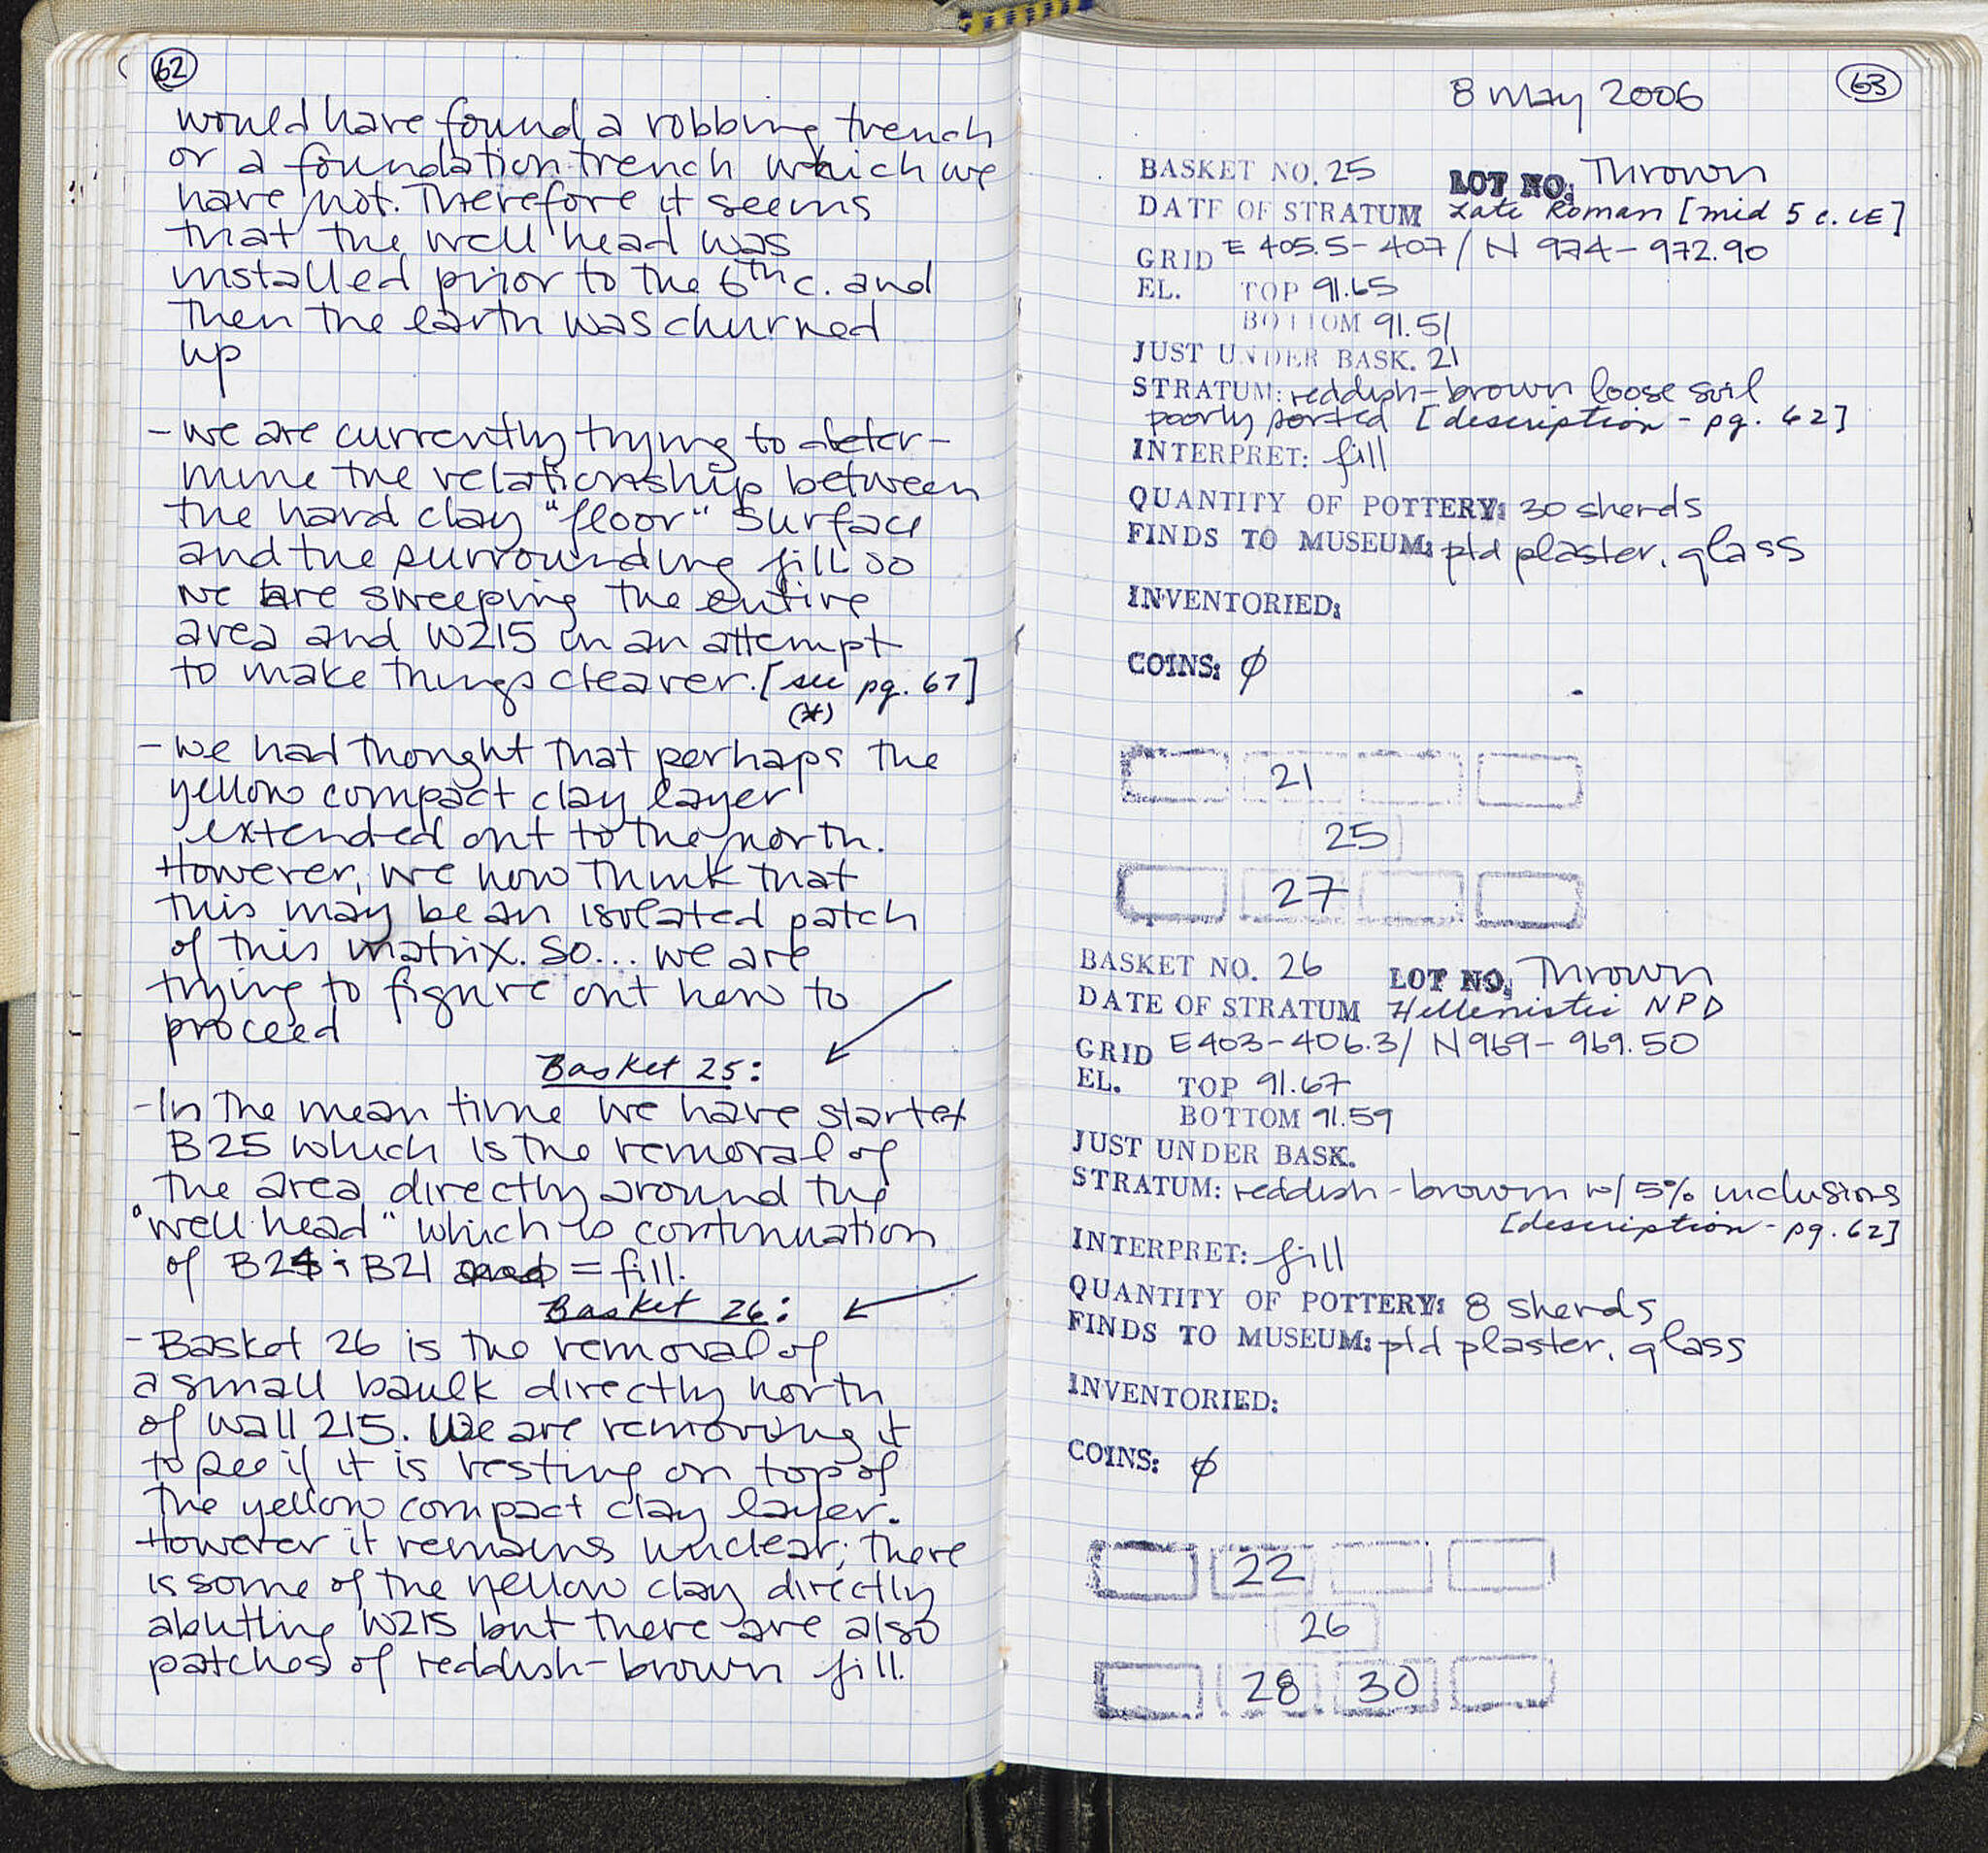 62
would have found a robbing trench
or a foundation trench which we
have not. Therefore it seems
that the well head was
installed prior to the 6th c. and
then the earth was churned
up
- we are currently trying to deter-
mine the relationship between
the hard clay "floor" surface
and the surrounding fill so
we are sweeping the entire
area and W215 in an attempt
to make things clearer. [see pg. 67]
(*)
- we had thought that perhaps the
yellow compact clay layer
extended out to the north.
However, we now think that
this may be an isolated patch
of this matrix. So... we are
trying to figure out how to
proceed
Basket 25:
- In the mean time we have started
B25 which is the removal of
the area directly around the
"well head" which is continuation
of B24; B21 = fill.
Basket 26:
- Basket 26 is the removal of
a small baulk directly north
of wall 215. We are removing it
to see if it is resting on top of
the yellow compact clay layer.
However it remains unclear; there
is some of the yellow clay directly
abutting W215 but there are also
patches of reddish-brown fill.
8 May 2006
63
BASKET NO. 25 LOT NO. Thrown
DATE OF STRATUM Late Roman [mid 5 c. CE]
GRID E 405.5-407 / N 974-972.90
EL. TOP 91.65
BOTTOM 91.51
JUST UNDER BASK. 21
STRATUM: reddish-brown loose soil
poorly sorted [description - pg. 62]
INTERPRET: fill
QUANTITY OF POTTERY: 30 sherds
FINDS TO MUSEUM: ptd plaster, glass
INVENTORIED:
COINS: ∅
21
25
27
BASKET NO. 26 LOT NO. Thrown
DATE OF STRATUM Hellenistic NPD
GRID E403-406.3/ N969-969.50
EL. TOP 91.67
BOTTOM 91.59
JUST UNDER BASK.
STRATUM: reddish-brown w/ 5% inclusions
[description - pg. 62]
INTERPRET: fill
QUANTITY OF POTTERY: 8 sherds
FINDS TO MUSEUM: ptd plaster, glass
INVENTORIED:
COINS: ∅
22
26
28 30